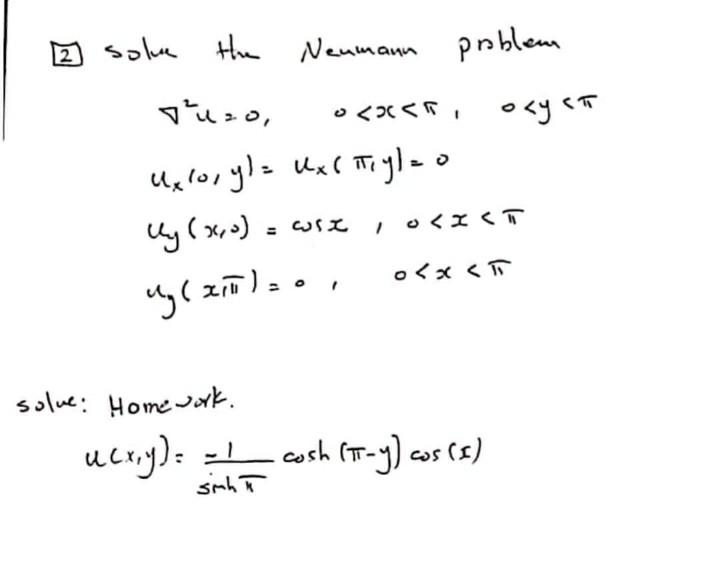 2 solve the Neumann problem
∇²u=0, 0<x<π, 0<y<π
uₓ(0,y)= uₓ(π,y)=0
u_y(x,0) = cosx , 0<x<π
u_y(x,π)=0, 0<x<π
solve: Homework.
u(x,y)= -1/sinh π cosh(π-y) cos(x)